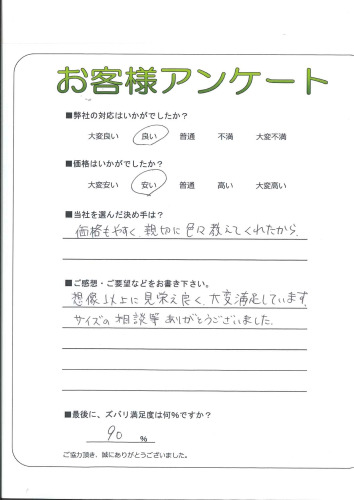 お客様アンケート
■弊社の対応はいかがでしたか？
大変良い 良い 普通 不満 大変不満
■価格はいかがでしたか？
大変安い 安い 普通 高い 大変高い
■当社を選んだ決め手は？
価格もやすく、親切に色々教えてくれたから、
■ご感想・ご要望などをお書き下さい。
想像以上に見栄え良く、大変満足しています。
サイズの相談等ありがとうございました。
■最後に、ズバリ満足度は何％ですか？
90 ％
ご協力頂き、誠にありがとうございました。